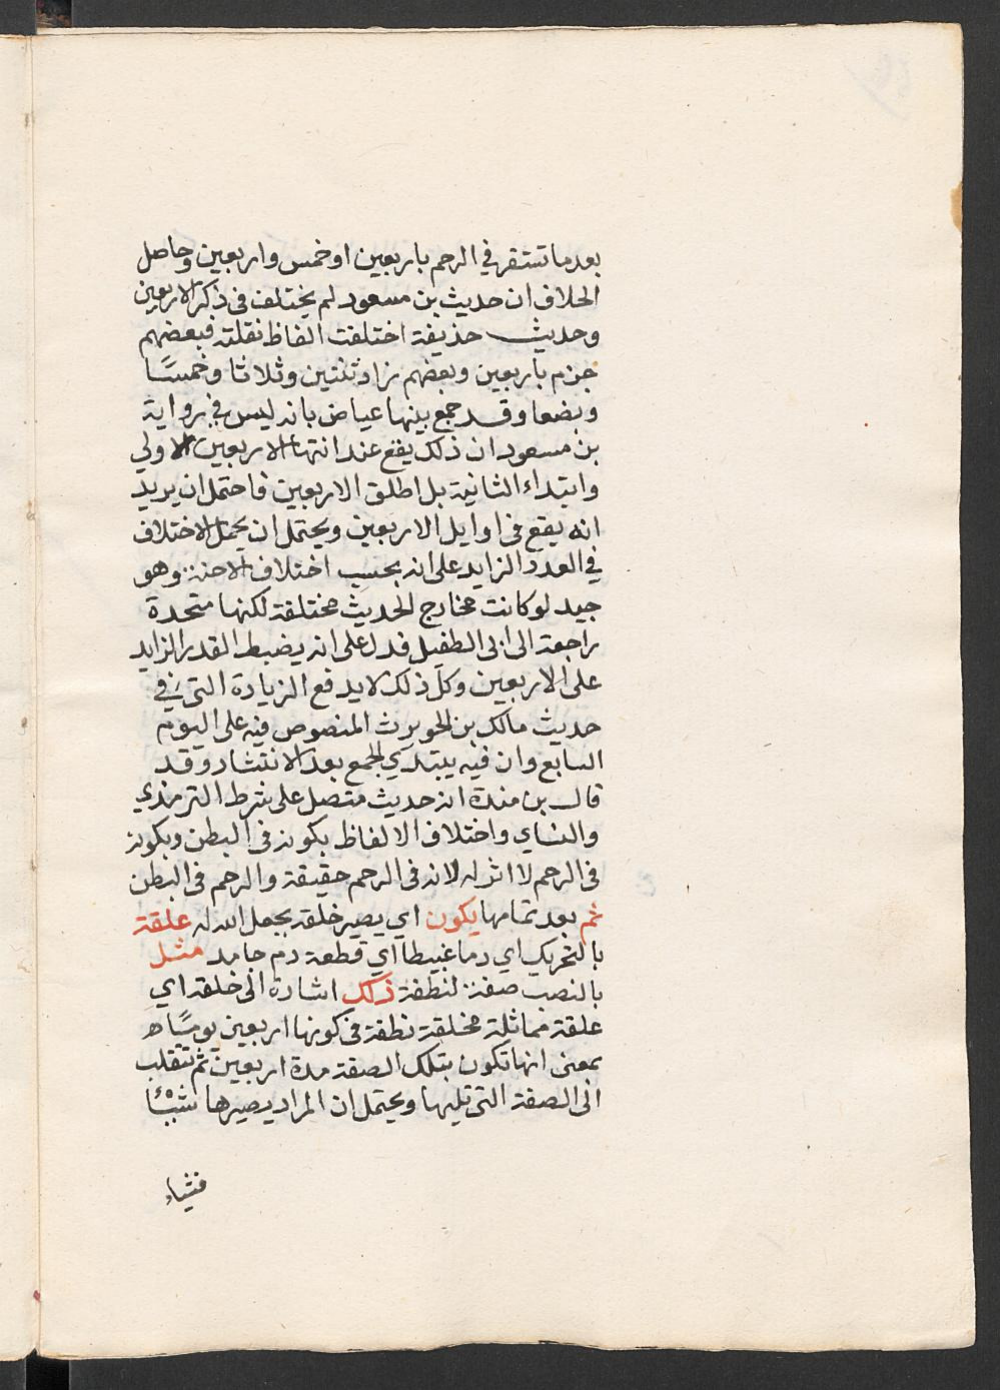 بعد ما تستقر في الرحم باربعين او خمس واربعين وحاصل
الخلاف ان حديث بن مسعود لم يختلف في ذكر الاربعين
وحديث حذيفة اختلفت الفاظ نقلته فبعضهم
جزم باربعين وبعضهم زاد ثنتين وثلاثا وخمسًا
وبضعا وقد جمع بينها عياض بانه ليس في رواية
بن مسعود ان ذلك يقع عند انتها الاربعين الاولي
وابتداء الثانية بل اطلق الاربعين فاحتمل ان يريد
انه يقع في اوايل الاربعين ويحتمل ان يحمل الاختلاف
في العدد الزايد على انه بحسب اختلاف الاجنة وهو
جيد لو كانت مخارج الحديث مختلقة لكنها متحدة
راجعة الى ابي الطفيل فدل على انه يضبط القدر الزايد
على الاربعين وكل ذلك لا يدفع الزيادة التي في
حديث مالك بن الحويرث المنصوص فيه على اليوم
السابع وان فيه يبتدي الجمع بعد الانتشار وقد
قال بن مندة انه حديث متصل على شرط الترمذي
والنساي واختلاف الالفاظ بكونه في البطن وبكونه
في الرحم لا اثر له لانه في الرحم حقيقة والرحم في البطن
ثم بعد تمامها يكون اي يصير خلقه بجعل الله له علقة
بالتحريك اي دما غبيطا اي قطعة دم جامد مثل
بالنصب صفة لنطفة ذلك اشارة الى خلقه اي
علقة مماثلة مخلقة نطفة في كونها اربعين يومًا
بمعنى انها تكون بتلك الصفة مدة اربعين ثم تنقلب
الى الصفة التي تليها ويحتمل ان المراد يصيرها شيئًا
فشياء